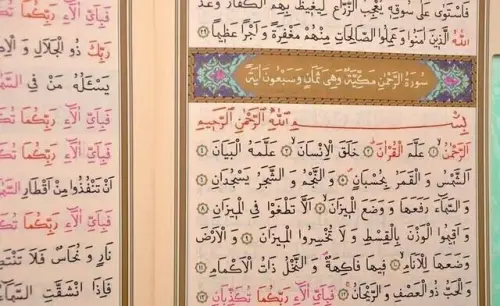 فَاسْتَوٰى عَلٰى سُوقِهِ يُعْجِبُ الزُّرَّاعَ لِيَغِيظَ بِهِمُ الْكُفَّارَ وَعَدَ
اللّٰهُ الَّذِينَ اٰمَنُوا وَعَمِلُوا الصَّالِحَاتِ مِنْهُمْ مَغْفِرَةً وَ اَجْرًا عَظِيمًا ٢٩
سُورَةُ الرَّحْمٰنِ مَكِّيَّةٌ وَهِيَ ثَمَانٍ وَسَبْعُونَ اٰيَةً
بِسْمِ اللّٰهِ الرَّحْمٰنِ الرَّحِيمِ
اَلرَّحْمٰنُ ١ عَلَّمَ الْقُرْاٰنَ ٢ خَلَقَ الْاِنْسَانَ ٣ عَلَّمَهُ الْبَيَانَ ٤
اَلشَّمْسُ وَ الْقَمَرُ بِحُسْبَانٍ ٥ وَ النَّجْمُ وَ الشَّجَرُ يَسْجُدَانِ ٦
وَ السَّمَاءَ رَفَعَهَا وَ وَضَعَ الْمِيزَانَ ٧ اَلَّا تَطْغَوْا فِي الْمِيزَانِ ٨
وَ اَقِيمُوا الْوَزْنَ بِالْقِسْطِ وَ لَا تُخْسِرُوا الْمِيزَانَ ٩ وَ الْاَرْضَ
وَضَعَهَا لِلْاَنَامِ ١٠ فِيهَا فَاكِهَةٌ وَ النَّخْلُ ذَاتُ الْاَكْمَامِ ١١
وَ الْحَبُّ ذُو الْعَصْفِ وَ الرَّيْحَانُ ١٢ فَبِاَيِّ اٰلَاءِ رَبِّكُمَا تُكَذِّبَانِ ١٣
فَبِاَيِّ اٰلَاءِ رَبِّكُمَا
رَبِّكَ ذُو الْجَلَالِ وَ الْاِ
يَسْـَٔلُهُ مَنْ فِي السَّمٰ
فَبِاَيِّ اٰلَاءِ رَبِّكُمَا تُكَ
فَبِاَيِّ اٰلَاءِ رَبِّكُمَا تُكَ
اَنْ تَنْفُذُوا مِنْ اَقْطَارِ السَّمٰ
فَبِاَيِّ اٰلَاءِ رَبِّكُمَا تُكَ
نَارٍ وَ نُحَاسٌ فَلَا تَنْتَصِ
فَاِذَا انْشَقَّتِ السَّمَا